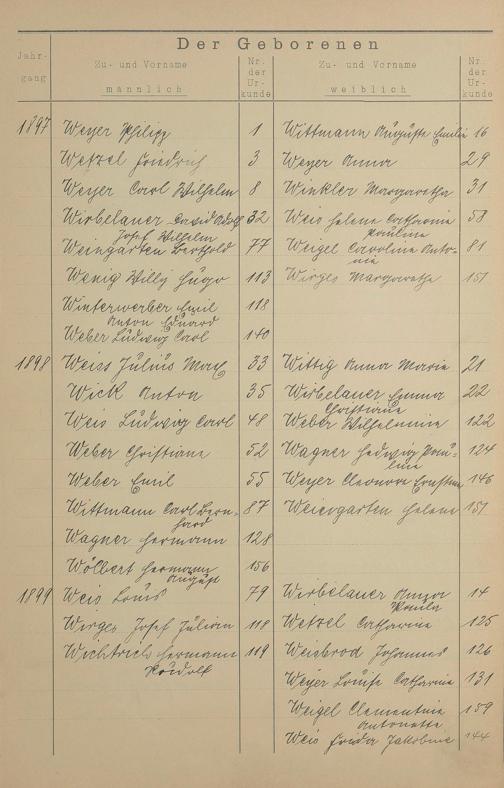 Der Geborenen
Jahr-
gang
Zu- und Vorname
männlich
Nr.
der
Ur-
kunde
Zu- und Vorname
weiblich
Nr.
der
Ur-
kunde
1897 Weyer Philipp 1 Wittmann Auguste Emilie 16
Wetzel Friedrich 3 Weyer Anna 29
Weyer Carl Wilhelm 8 Winkler Margaretha 31
Wirbelauer David Adolf 32 Weis Helene Catharine 58
Josef Wilhelm Pauline
Weingarten Berthold 77 Weigel Caroline Anto- 81
nie
Wenig Willy Hugo 113 Wirges Margaretha 151
Winterwerber Emil 118
Anton Eduard
Weber Ludwig Carl 140
1898 Weiss Julius Max 33 Wittig Anna Marie 21
Wick Anton 35 Wirbelauer Emma 22
Christiane
Weis Ludwig Carl 48 Weber Wilhelmine 122
Weber Christiane 52 Wagner Hedwig Pau- 124
line
Weber Emil 55 Weyer Eleonora Ernstine 146
Wittmann Carl Bern- 87 Weingarten Helene 151
hard
Wagner Hermann 128
Wölbert Hermann 156
August
1899 Weis Louis 79 Wirbelauer Anna 14
Paula
Wirges Josef Julian 118 Wetzel Catharine 125
Wichtrich Hermann 119 Weisbrod Johanna 126
Rudolf
Weyer Louise Catharine 131
Weigel Clementine 159
Antonette
Weis Frieda Jakobine 144